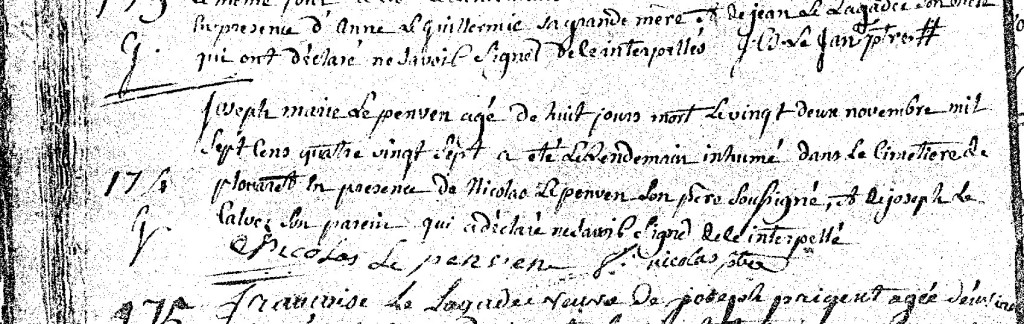 en presence d'anne le guillermic sa grande mere et de jean le Lagadec son oncle
qui ont déclaré ne savoir signer de ce interpellés J: Le Jan ptre
174 Joseph marie Le penven agé de huit jours mort le vingt deux novembre mil
sept cens quatre vingt sept a eté le lendemain inhumé dans le cimetiere de
plouaret en presence de Nicolas Le penven son pere soussigné, et de joseph Le
Calvez son parein qui a déclaré ne savoir signer de ce interpellé
Nicolas Le penven nicolas ptre
175 Françoise Le Lagadec veuve de joseph prigent agée